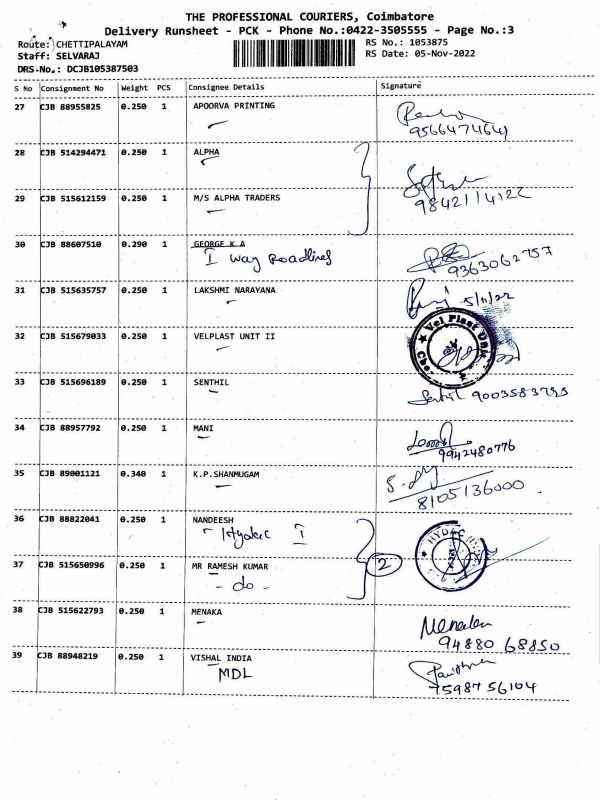 THE PROFESSIONAL COURIERS, Coimbatore
Delivery Runsheet - PCK - Phone No.:0422-3505555 - Page No.:3
Route: CHETTIPALAYAM RS No.: 1053875
Staff: SELVARAJ RS Date: 05-Nov-2022
DRS-No.: DCJB105387503
S No Consignment No Weight PCS Consignee Details Signature
27 CJB 88955825 0.250 1 APOORVA PRINTING
28 CJB 514294471 0.250 1 ALPHA
29 CJB 515612159 0.250 1 M/S ALPHA TRADERS
9842114122
30 CJB 88607510 0.290 1 GEORGE K A
I Way Roadlines
9363062757
31 CJB 515635757 0.250 1 LAKSHMI NARAYANA
5/11/22
32 CJB 515679033 0.250 1 VELPLAST UNIT II
Vel Plast Unit
33 CJB 515696189 0.250 1 SENTHIL
34 CJB 88957792 0.250 1 MANI
9942480776
35 CJB 89001121 0.340 1 K.P.SHANMUGAM
8105136000
36 CJB 88822041 0.250 1 NANDEESH
Hydac I
HYDAC
37 CJB 515650996 0.250 1 MR RAMESH KUMAR
- do - 2
38 CJB 515622793 0.250 1 MENAKA
Menaka
94880 68850
39 CJB 88948219 0.250 1 VISHAL INDIA
MDL
75987 56104